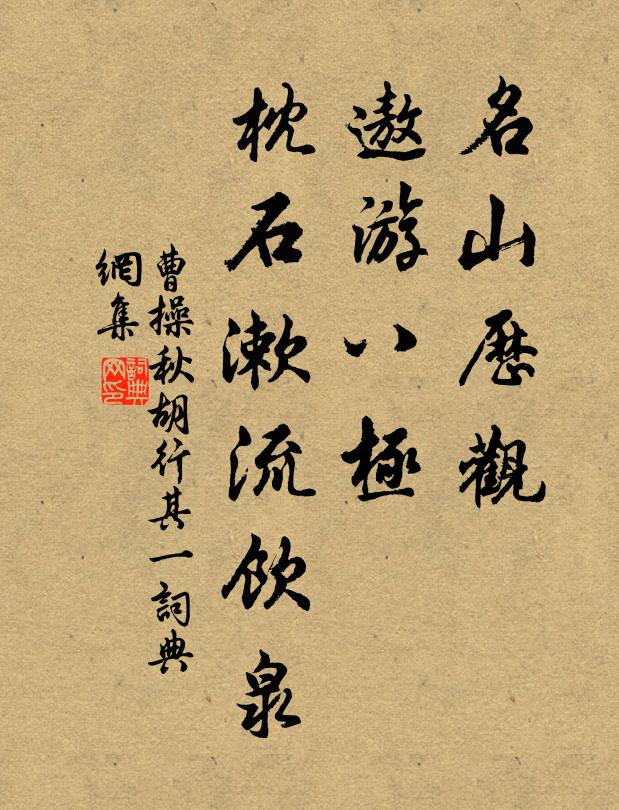 名山歷觀
遨游八極
枕石漱流飲泉
曹操秋胡行其一詞典
網集
詞典網印